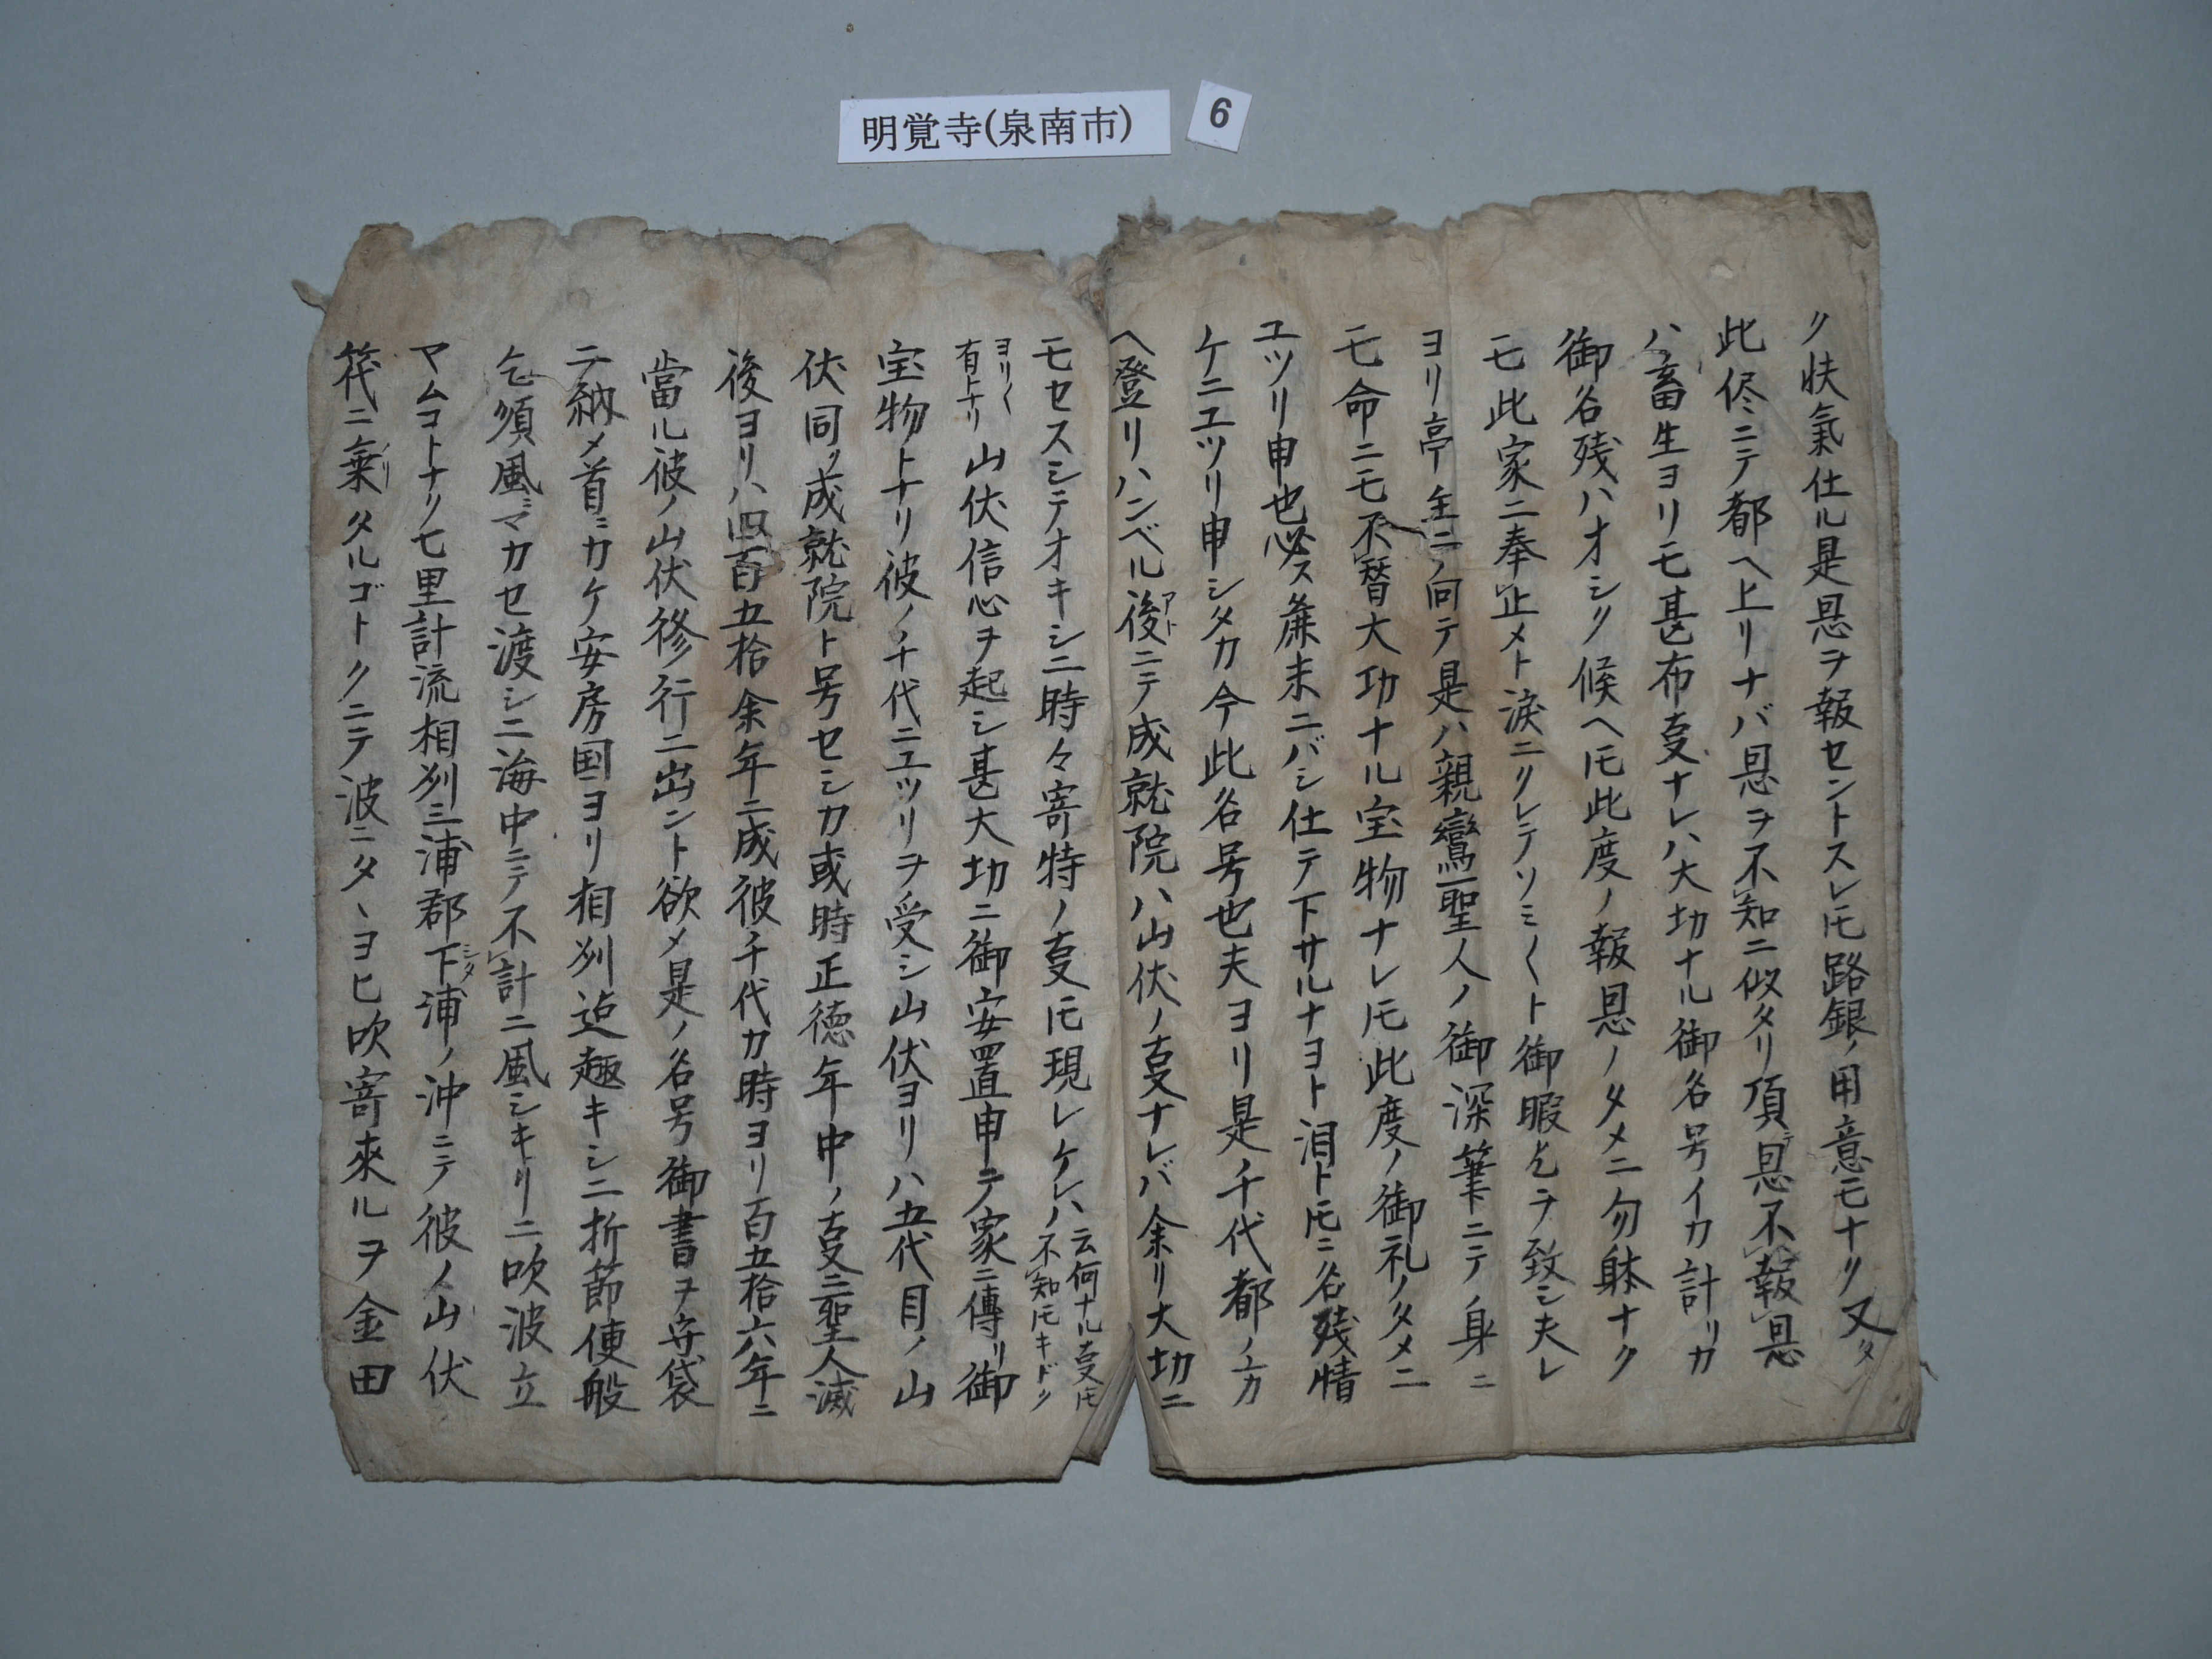 明覚寺(泉南市)
6
ク快氣仕ル是恩ヲ報セントスレ𪜈路銀ノ用意モナク又タ
此侭ニテ都ヘ上リナバ恩ヲ不知ニ似タリ頂恩不報恩
ハ畜生ヨリモ甚布叓ナレハ大切ナル御名号イカ計リカ
御名残ハオシク候ヘ𪜈此度ノ報恩ノタメニ勿躰ナク
モ此家ニ奉止メト涙ニクレテソミ〱ト御暇乞ヲ致シ夫レ
ヨリ亭主ニ向テ是ハ親鸞聖人ノ御深筆ニテ身ニ
モ命ニモ不替大功ナル宝物ナレ𪜈此度ノ御礼ノタメニ
ユツリ申也必ス麁末ニバシ仕テ下サルナヨト泪ト𪜈ニ名残情
ケニユツリ申シタカ今此名号也夫ヨリ是千代都ノカ
ヘ登リハンベル後アトニテ成就院ハ山伏ノ叓ナレバ余リ大切ニ
モセスシテオキシニ時々寄特ノ叓𪜈現レケレハ云何ナル叓𪜈不知𪜈キドク
ヨリ〱有上ナリ山伏信心ヲ起シ甚大功ニ御安置申テ家ニ傳リ御
宝物トナリ彼ノ千代ニユツリヲ受シ山伏ヨリハ五代目ノ山
伏同ク成就院ト号セシカ或時正徳年中ノ叓ニ聖人滅
後ヨリハ四百五拾余年ニ成彼千代カ時ヨリ百五拾六年ニ
當ル彼ノ山伏修行ニ出ント欲メ是ノ名号御書ヲ守袋
ニ納メ首ニカケ安房国ヨリ相刕迄趣キシニ折節便般
乞須風ニマカセ渡シニ海中ニテ不計ニ風シキリニ吹波立
マムヨトナク七里計流相刕三浦郡下シタ浦ノ沖ニテ彼ノ山伏
筏ニ乗ノリタルゴトクニテ波ニタヽヨヒ吹寄來ルヲ金田